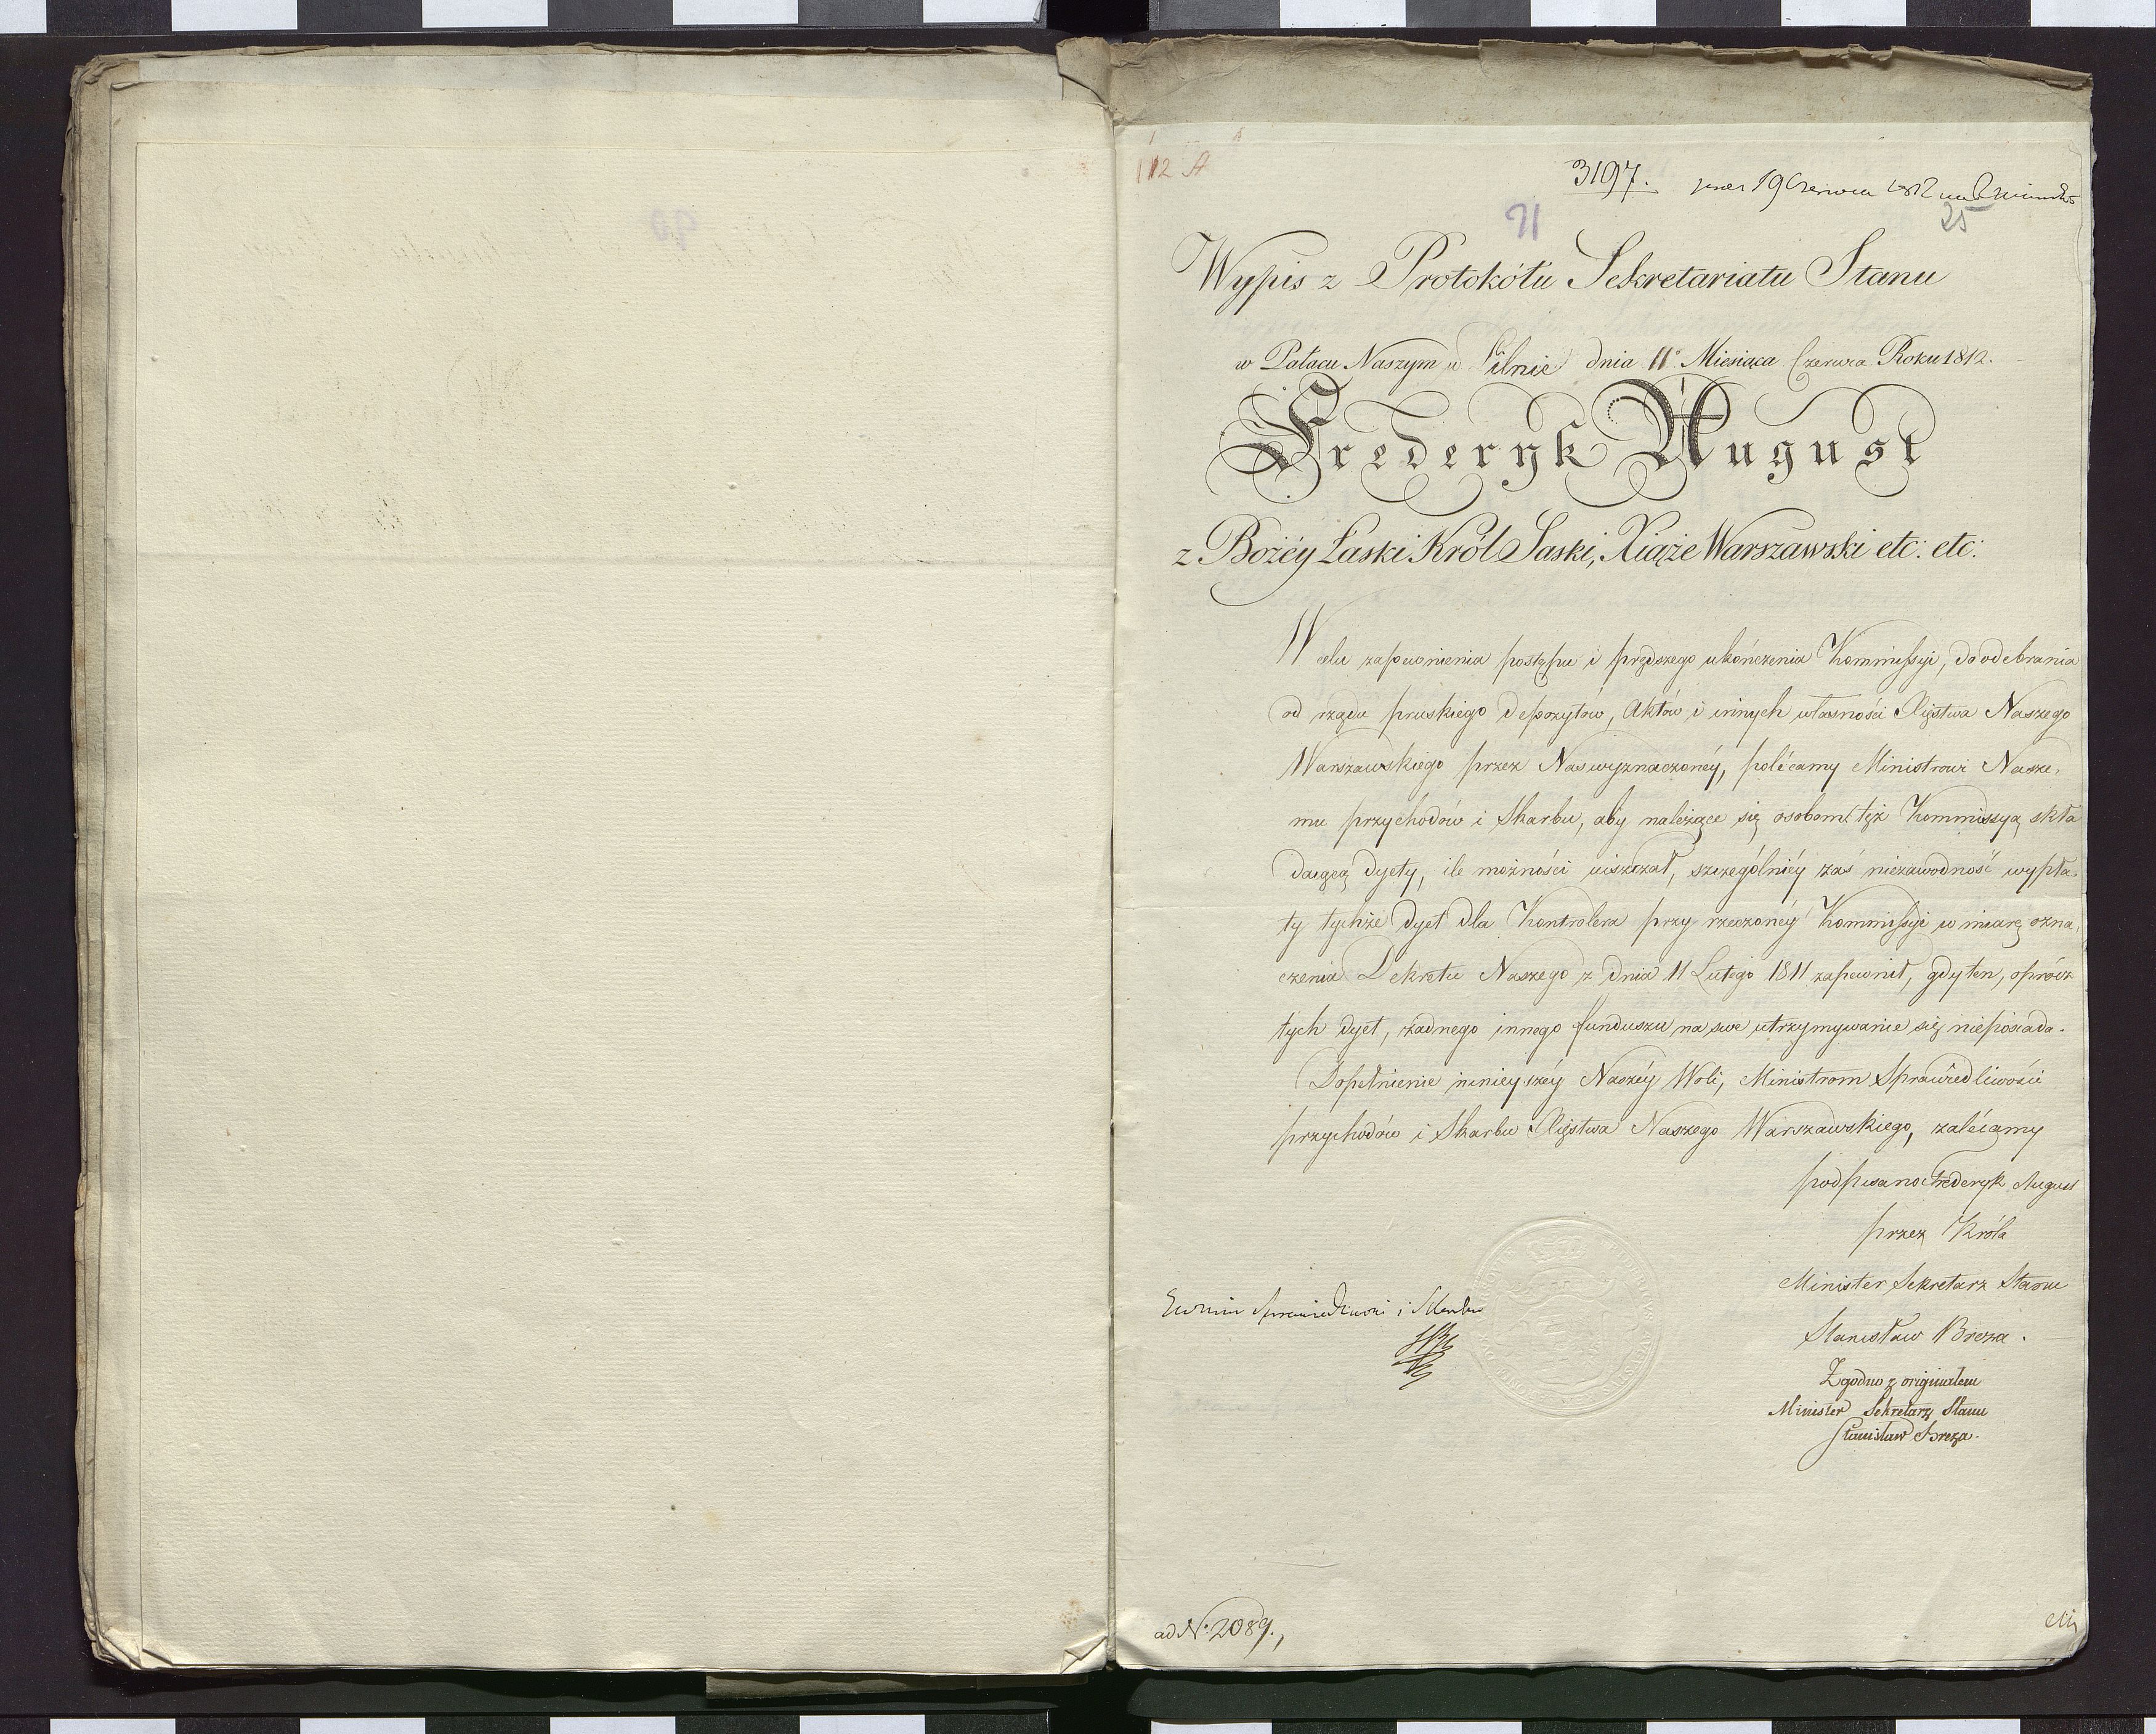 112 A
3197.
19 Czerwca 1812
91
25
Wypis z Protokółu Sekretariatu Stanu
w Pałacu Naszym w Pilnie dnia 11 Miesiąca Czerwca Roku 1812.
Frederyk August
z Bożéy Łaski Król Saski, Xiąże Warszawski etc: etc:
W celu zapewnienia postępu i prędszego ukończenia Kommissyi, do odebrania
od rządu pruskiego depozytów, Aktów i innych własności Xięstwa Naszego
Warszawskiego przez Nas wyznaczonéy, polécamy Ministrowi Nasze,
mu przychodów i Skarbu, aby należące się osobom tęż Kommissyą skła
daiącą dyety, ile możności uiszczał, szczególniéy zaś niezawodność wypła
ty tychże dyet dla Kontrolera przy rzeczonéy Kommissyi w miarę ozna,
czenia Dekretu Naszego z dnia 11 Lutego 1811 zapewnił, gdy ten, oprócz
tych dyet, żadnego innego funduszu na swe utrzymywanie się nieposiada.
Dopełnienie ninieyszéy Naszéy Woli, Ministrom Sprawiedliwości
przychodów i Skarbu Xięstwa Naszego Warszawskiego, zalécamy
podpisano Frederyk August
przez Króla
Minister Sekretarz Stanu
Stanisław Breza.
Zgodno z originałem
Minister Sekretarz Stanu
Stanisław Breza.
i Skarbu
ad N: 2089.,